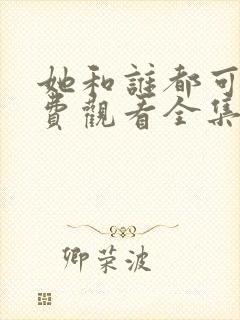 她和誰都可
費觀看全集
卿荣波